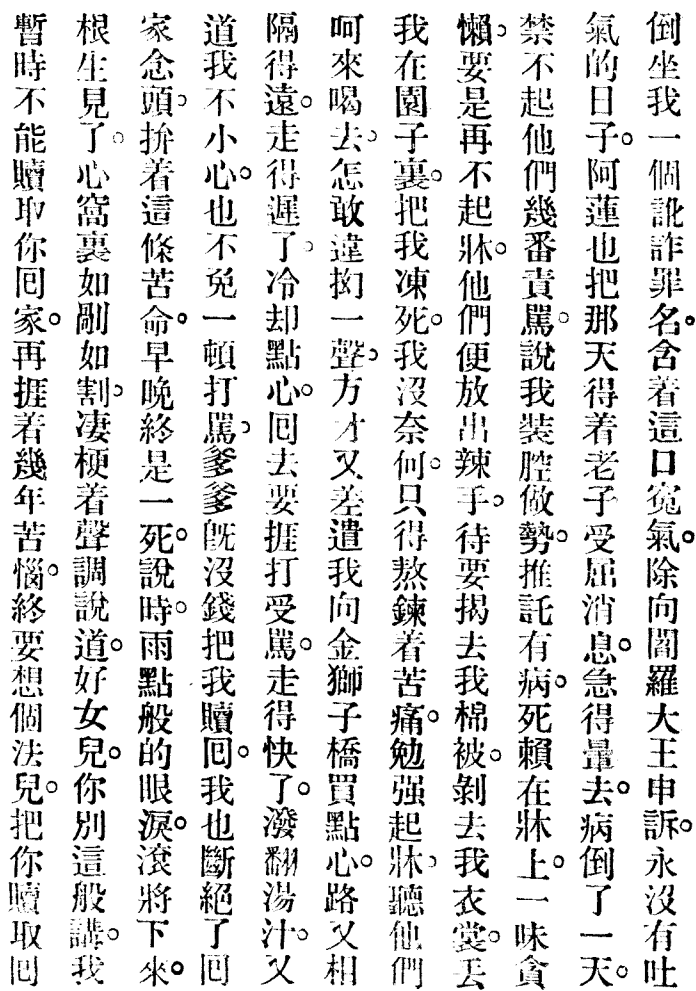 倒坐我一個訛詐罪名。含着這口寃氣。除向閻羅大王申訴。永沒有吐
氣的日子。阿蓮也把那天得着老子受屈消息。急得暈去。病倒了一天。
禁不起他們幾番責罵。說我裝腔做勢。推託有病。死賴在牀上。一味貪
懶。要是再不起牀。他們便放出辣手。待要揭去我棉被。剝去我衣裳。丟
我在園子裏。把我凍死。我沒奈何。只得熬鍊着苦痛。勉强起牀。聽他們
呵來喝去。怎敢違拗一聲。方才又差遣我向金獅子橋買點心。路又相
隔得遠。走得遲了。冷却點心。囘去要捱打受罵。走得快了。潑翻湯汁。又
道我不小心。也不免一頓打罵。爹爹旣沒錢把我贖囘。我也斷絕了囘
家念頭。拚着這條苦命。早晚終是一死。說時。雨點般的眼淚。滾將下來。
根生見了。心窩裏如剮如割。凄梗着聲調說道。好女兒。你別這般講。我
暫時不能贖取你囘家。再捱着幾年苦惱。終要想個法兒。把你贖取囘